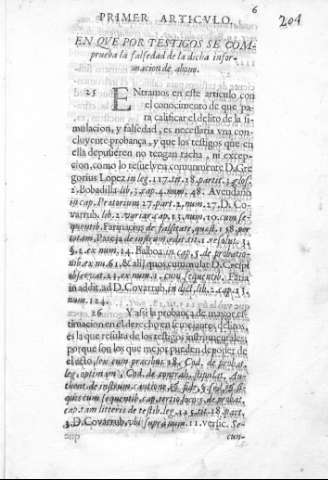 6
204
PRIMER ARTICVLO.
EN QVE POR TESTIGOS SE COM-
prueba la falsedad de la dicha infor-
macion de abono.
25 ENtramos en este articulo con
el conocimiento de que pa
ra calificar el delito de la si
mulacion, y falsedad, es necessaria vna con
cluyente probança, y que los testigos que en
ella depusieren no tengan tacha, ni excep-
cion, como lo resuelven comunmente D. Gre
gorius Lopez in leg. 117. tit. 18. partit. 3. glos.
2. Bobadilla lib. 5. cap. 4. num. 48. Avendaño
in cap. Prætorum 27. part. 2. num. 27. D. Co-
varrub. lib. 2. variar. cap. 13. num. 10. cum se-
quentib. Farinacius de falsitate, quæst. 158. per
totam, Pareja de instrum. edit. tit. 1. resolut. 3.
§. 2. ex num. 14. Balboa in cap. 5. de probatio-
nib. ex num. 61. & alij quos cumulat D. Crespi
observat. 21. ex num. 1. cum sequentib. Faria
in addit. ad D. Covarrub. in dict. lib. 2. cap. 13.
num. 124.
26 Y assi la probança de mayor es-
timacion en el derecho en semejantes delitos,
es la que resulta de los testigos instrumentales
porque son los que mejor pueden deponer de
el acto,
leg. optimam
3. D. Covarrub. vbi supra num. 11. versic. Se-
cun-